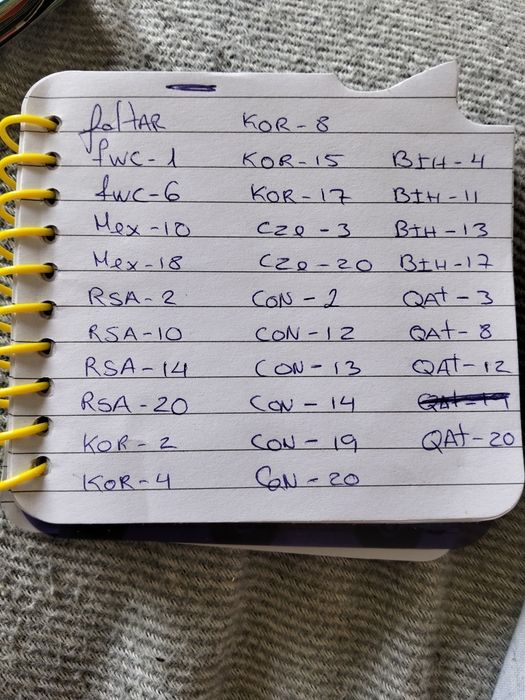 faltAR
fwc-1
fwc-6
Mex-10
Mex-18
RSA-2
RSA-10
RSA-14
RSA-20
KOR-2
KOR-4
KOR-8
KOR-15
KOR-17
CZe-3
CZe-20
CAN-2
CAN-12
CAN-13
CAN-14
CAN-19
CAN-20
BIH-4
BIH-11
BIH-13
BIH-17
QAt-3
QAt-8
QAt-12
QAt-20